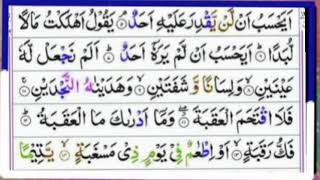 اَيَحْسَبُ اَنْ لَّنْ يَّقْدِرَ عَلَيْهِ اَحَدٌ ۘ يَقُوْلُ اَهْلَكْتُ مَالًا
لُّبَدًا ؕ اَيَحْسَبُ اَنْ لَّمْ يَرَهٗۤ اَحَدٌ ؕ اَلَمْ نَجْعَلْ لَّهٗ
عَيْنَيْنِ ۙ وَلِسَانًا وَّ شَفَتَيْنِ ۙ وَهَدَيْنٰهُ النَّجْدَيْنِ ۚ
فَلَا اقْتَحَمَ الْعَقَبَةَ ۖ وَمَاۤ اَدْرٰىكَ مَا الْعَقَبَةُ ؕ
فَكُّ رَقَبَةٍ ۙ اَوْ اِطْعٰمٌ فِيْ يَوْمٍ ذِيْ مَسْغَبَةٍ ۙ يَّتِيْمًا